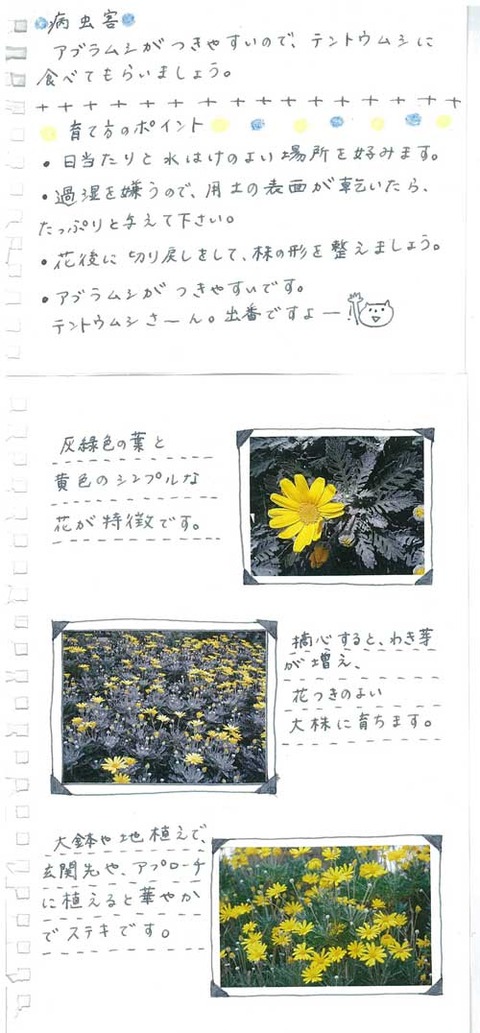 病虫害
アブラムシがつきやすいので、テントウムシに
食べてもらいましょう。
育て方のポイント
・日当たりと水はけのよい場所を好みます。
・過湿を嫌うので、用土の表面が乾いたら、
たっぷりと与えて下さい。
・花後に切り戻しをして、株の形を整えましょう。
・アブラムシがつきやすいです。
テントウムシさーん。出番ですよー！
灰緑色の葉と
黄色のシンプルな
花が特徴です。
摘心すると、わき芽
が増え、
花つきのよい
大株に育ちます。
大鉢や地植えで、
玄関先や、アプローチ
に植えると華やか
でステキです。